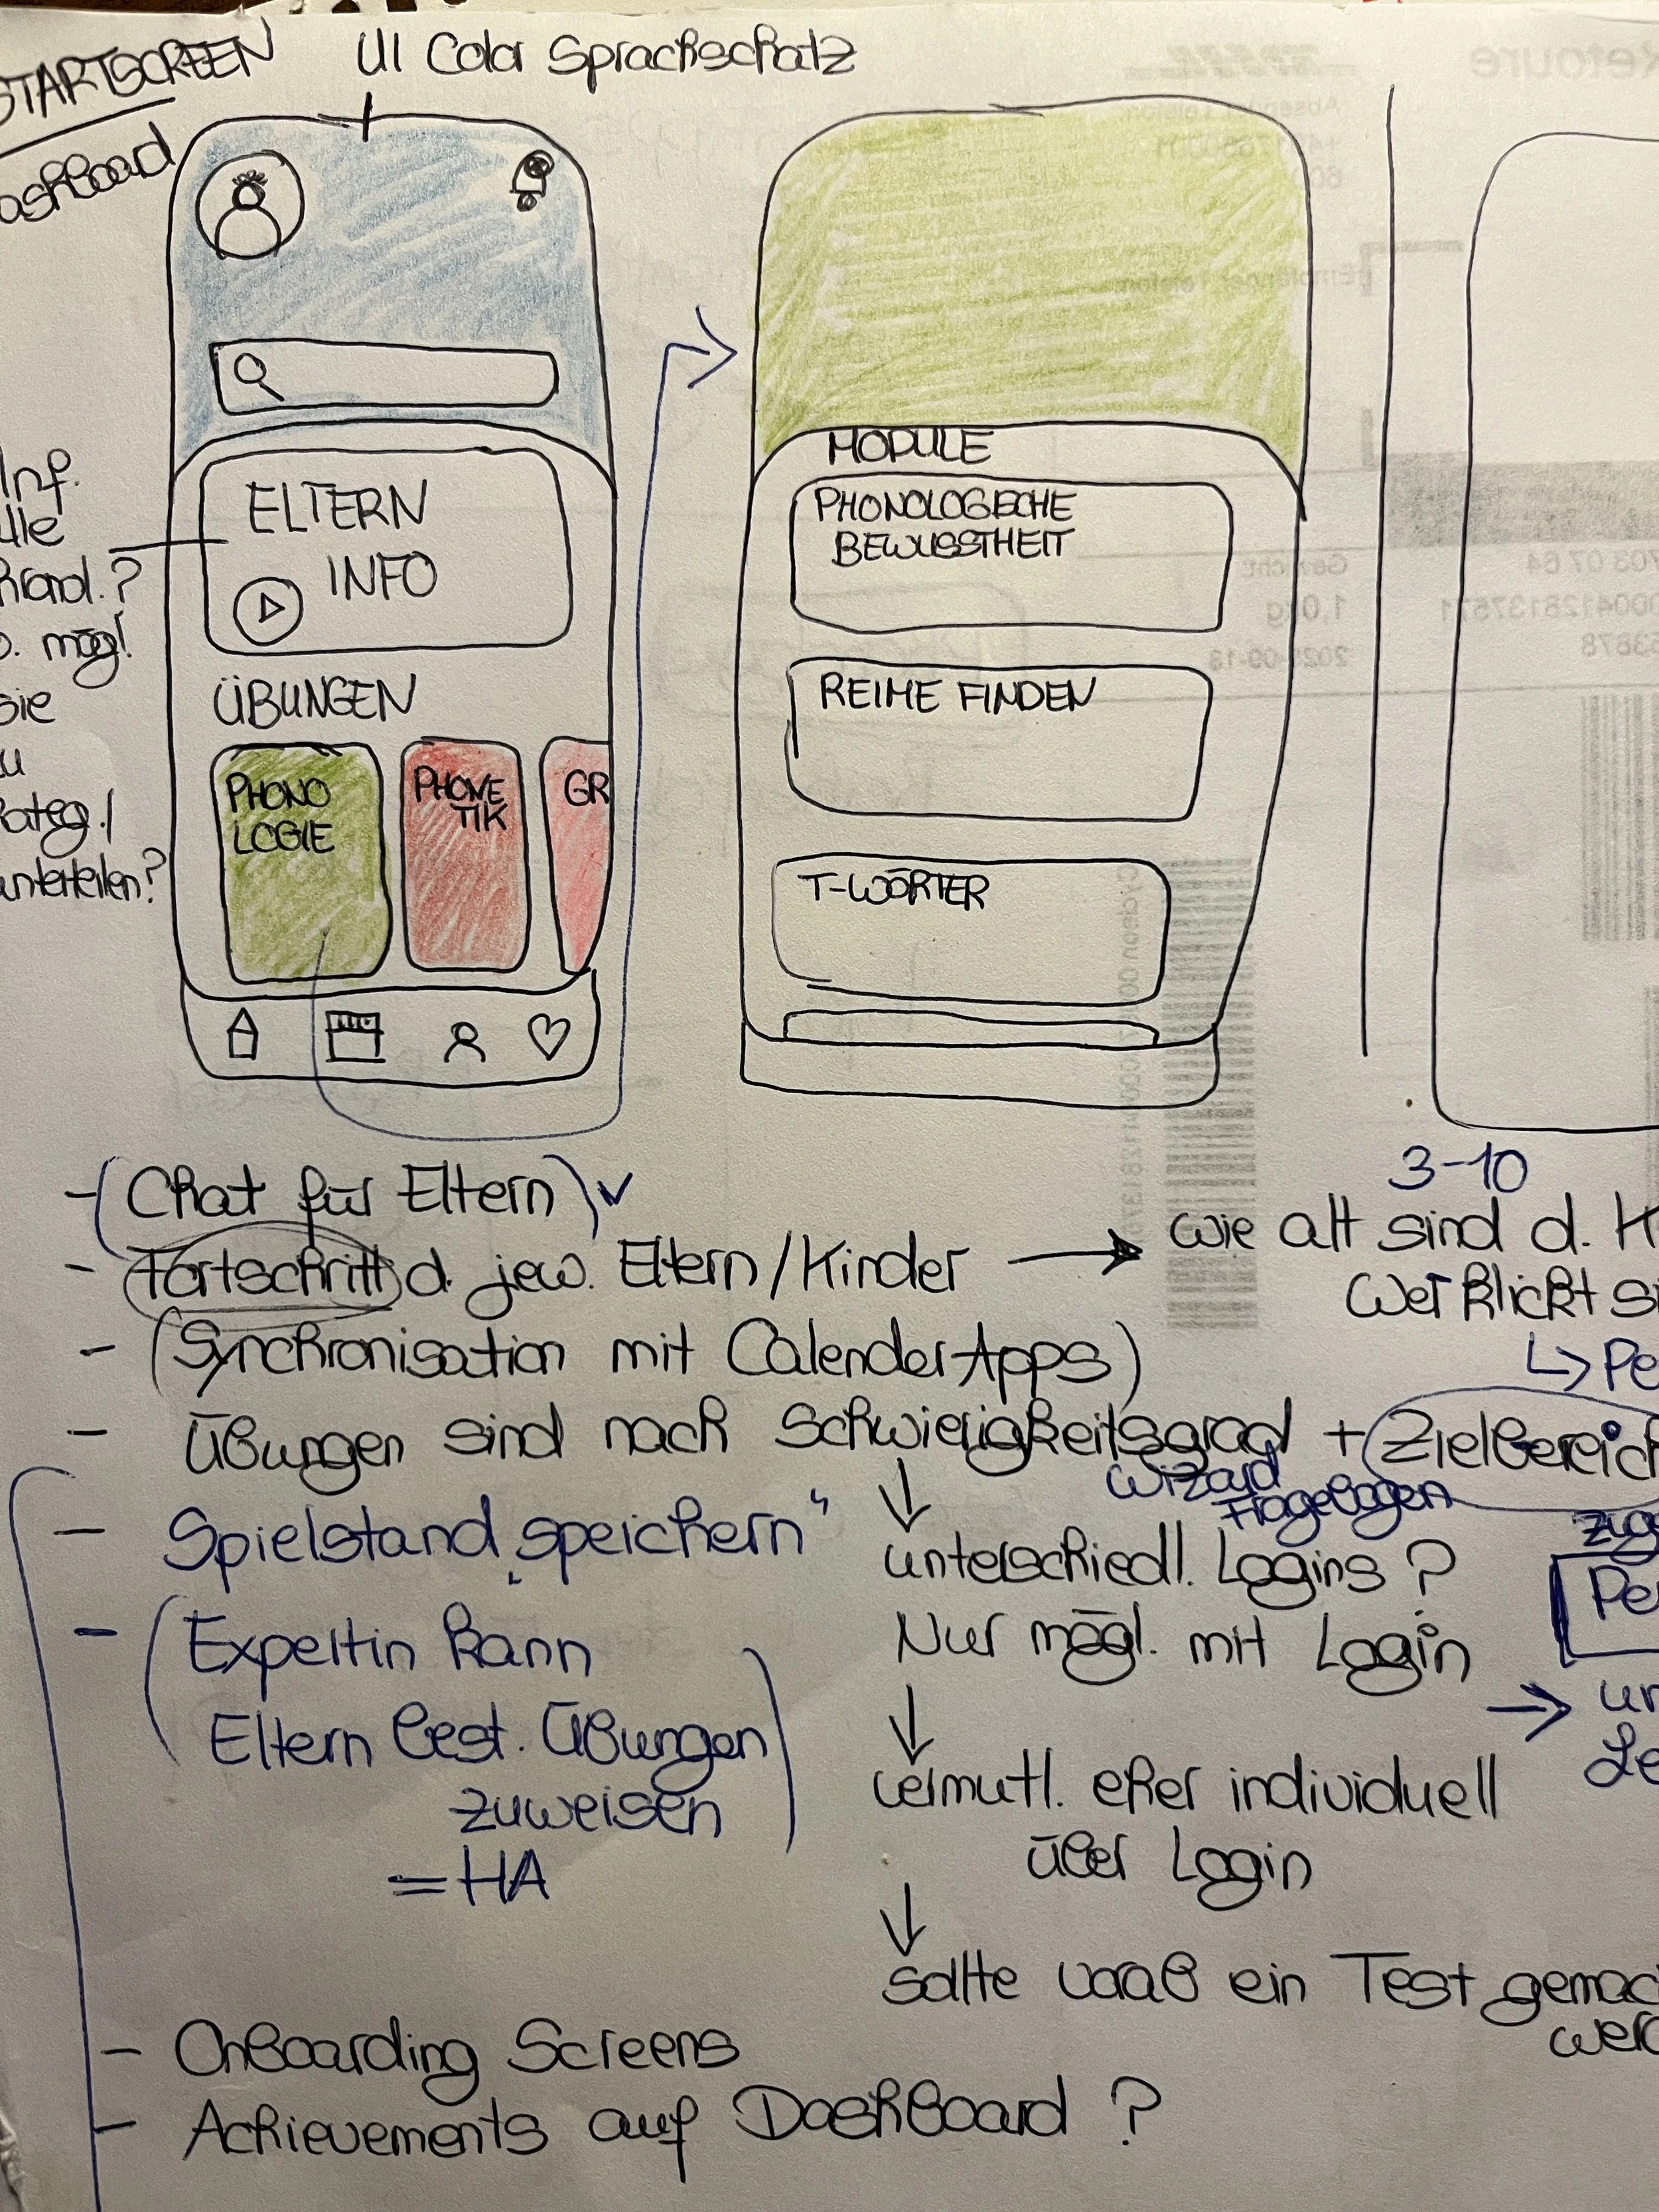 STARTSCREEN
UI Color Sprachschatz
ashboard
Inf.
? mögl.
sie
unterteilen?
ELTERN
INFO
ÜBUNGEN
PHONO
LOGIE
PHONE
TIK
GR
MODULE
PHONOLOGISCHE
BEWUSSTHEIT
REIME FINDEN
T-WÖRTER
- (Chat für Eltern) ✓
- Fortschritt d. jew. Eltern/Kinder →
3-10
wie alt sind d. K
Wer klickt si
↳ Pe
- (Synchronisation mit Calender Apps)
- Übungen sind nach Schwierigkeitsgrad + Zielbereich
Wizard
Fragebogen
zug
Pe
- Spielstand „speichern"
↓
unterschiedl. Logins?
Nur mögl. mit Login
- (Expertin kann
Eltern best. Übungen
zuweisen)
= HA
→ un
↓
vermutl. eher individuell
über Login
↓
sollte vorab ein Test gemac
werd
- Onboarding Screens
- Achievements auf Dashboard?
Retoure
Gewicht:
1,0kg